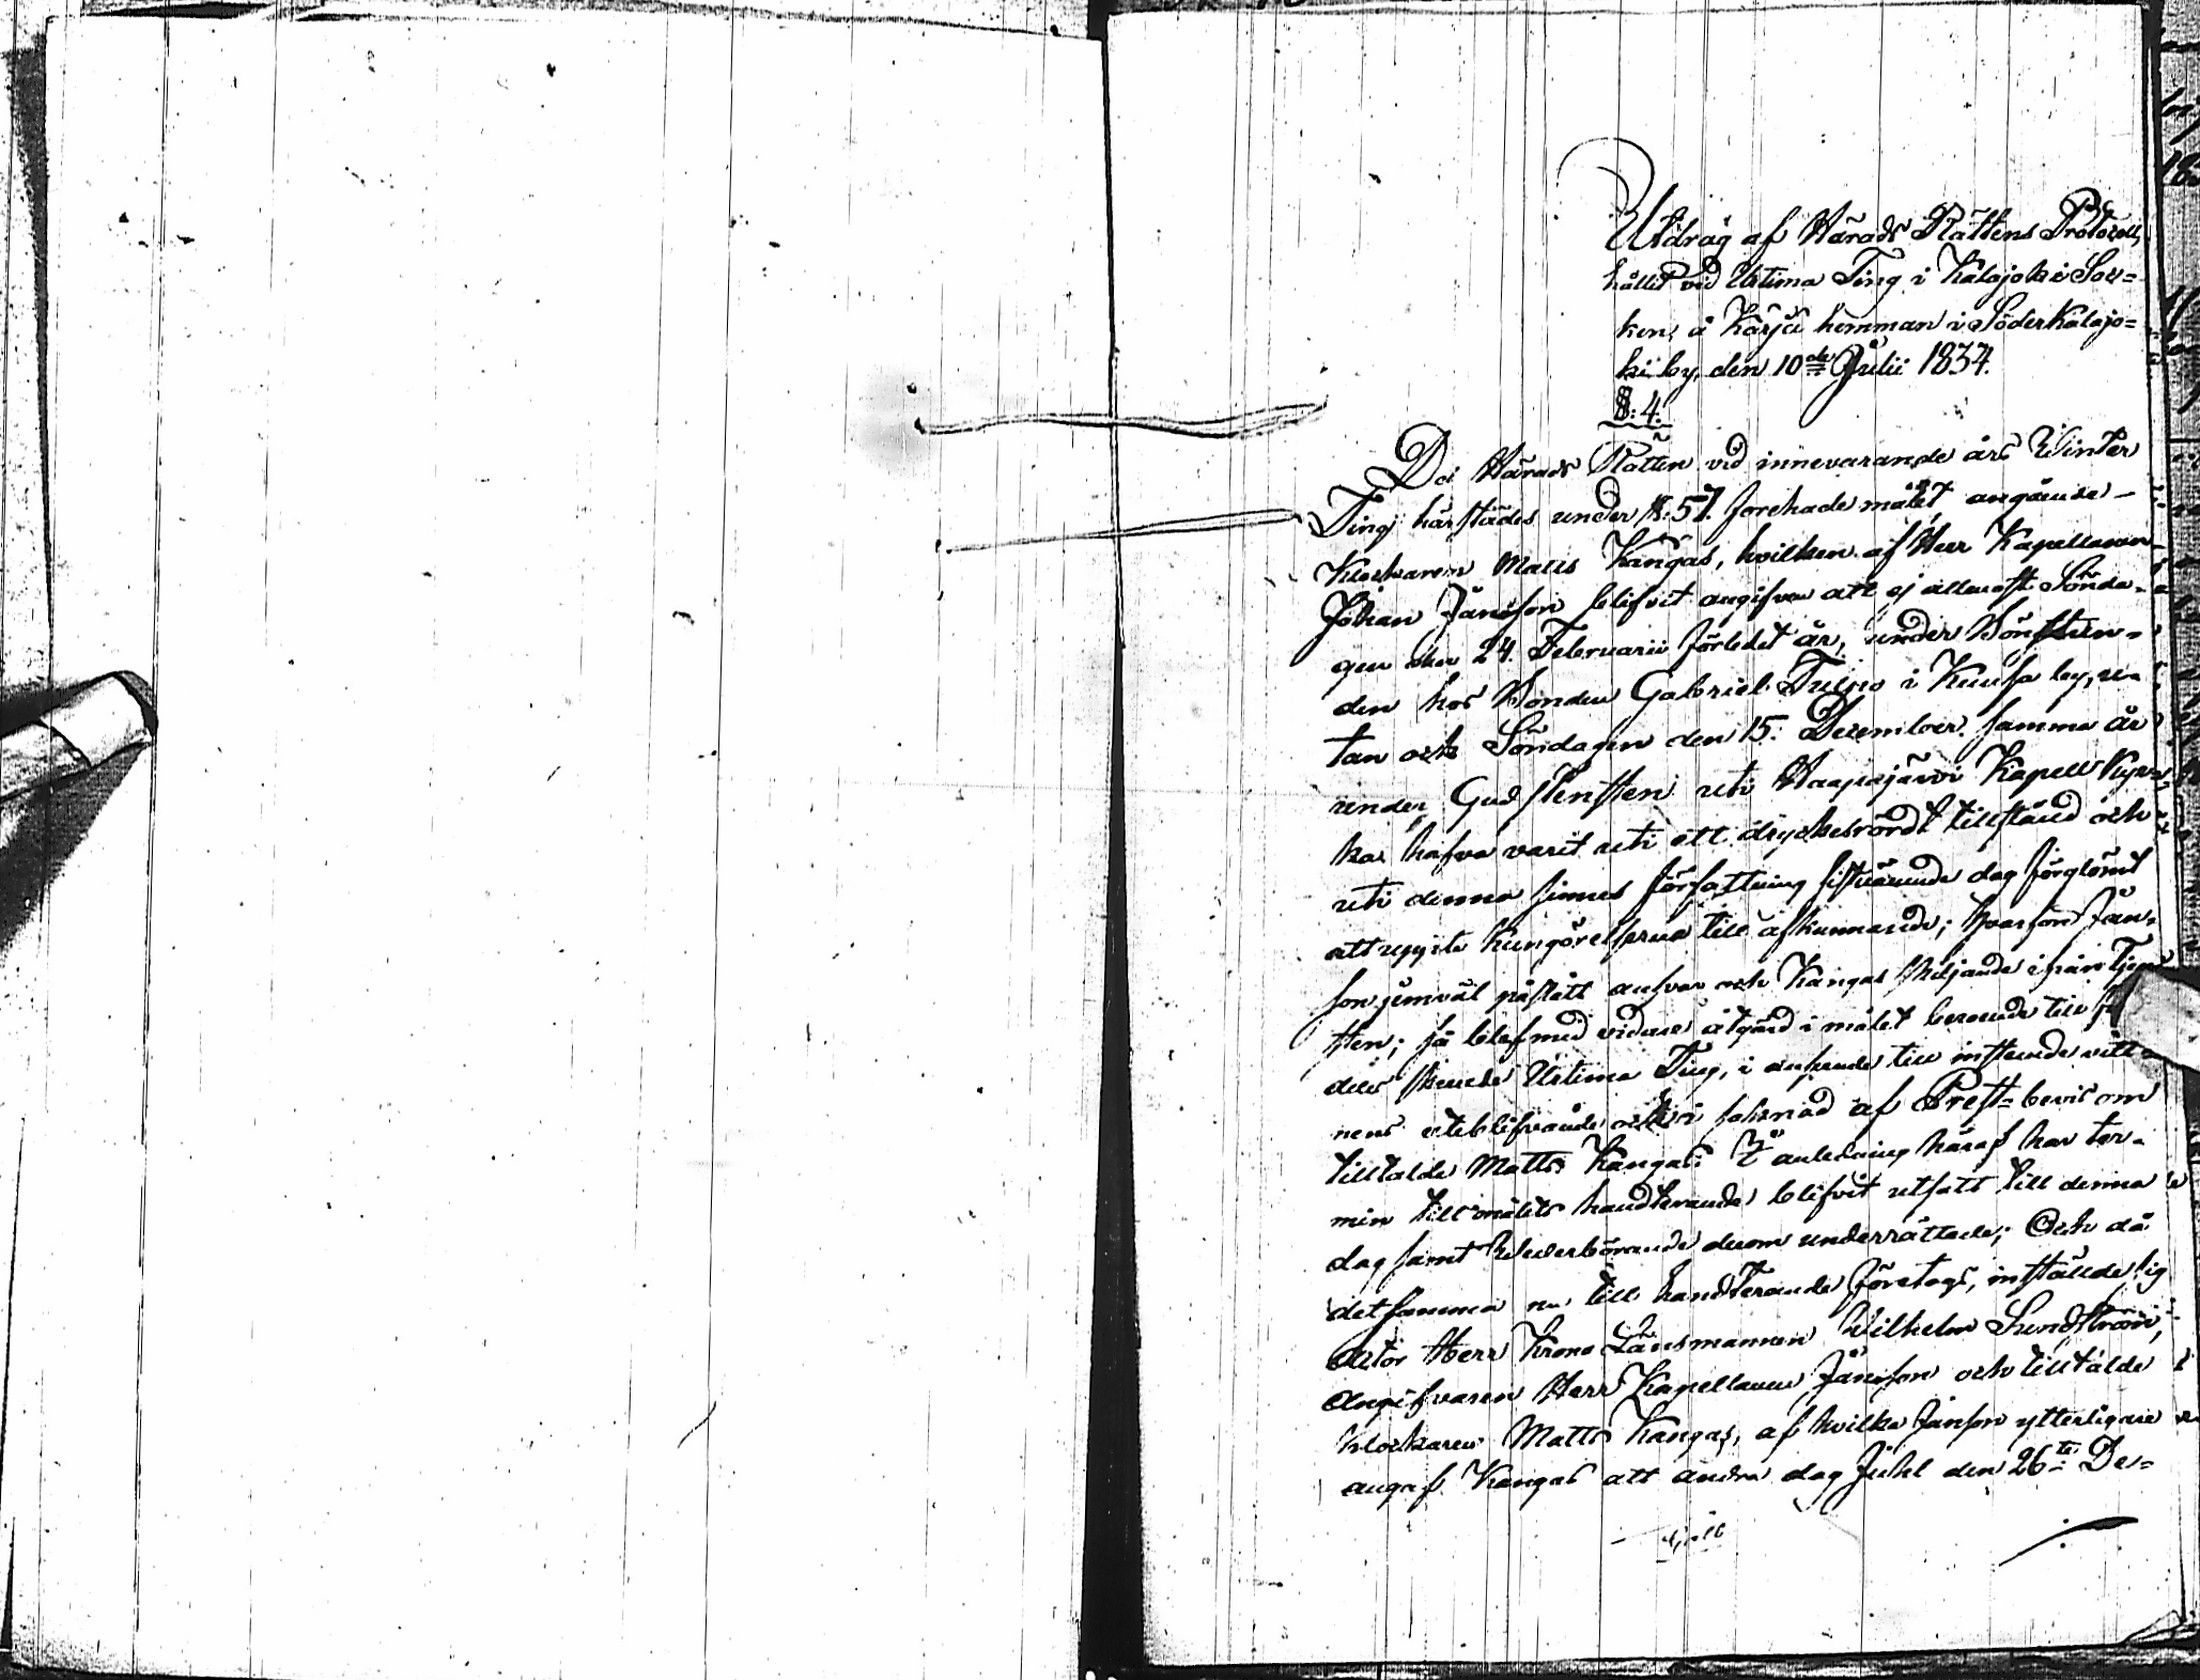 Utdrag af Härads Rättens Protocoll,
hållit vid Urtima Ting i Kalajoki Soc=
ken, å Kärjä hemman i Söderkalajo=
ki by, den 10de Julii 1834.
§: 4.
Då Härads Rätten vid innevarande års Winter
Ting härstädes under §: 57. forehade målet, angående
Klockaren Matts Kangas, hvilken af Herr Kapellanen
Johan Jansson blifvit angifven att ej allenast Sönda-
gen den 24. Februarii förledet år, under Bönstun-
den hos Bonden Gabriel Tulpo i Kuusa by, u-
tan och Söndagen den 15. December samma år
under Gudstensten uti Haapajärvi Kapell Kyr-
ka hafva varit uti ett dryckesrördt tillstånd och
uti denna sinnes författning sistnämnde dag förglömt
att uppte Kungörelserna till afkunnande; hvarföre Jan-
son jemväl påstått ansvar och Kangas skiljande ifrån Tjen
sten; så blef med vidare åtgärd i målet beroende till
skeende Urtima Ting, i anseende till instemde vitt-
nens uteblifvande och i saknad af Prest=bevis om
tilltalde Matts Kangas. I anledning häraf har ter-
min till målets handterande blifvit utsatt till denna
dag samt Wederbörande derom underrättade; Och då
detsamma nu till handterande företogs, instälde sig
Actor Herr Krono Länsmannen Wilhelm Sundström,
Angifvaren Herr Kapellanen Jansson och tilltalde
Klockaren Matts Kangas, af hvilka Janson ytterligare
angaf Kangas att andra dag Juhl den 26te De=